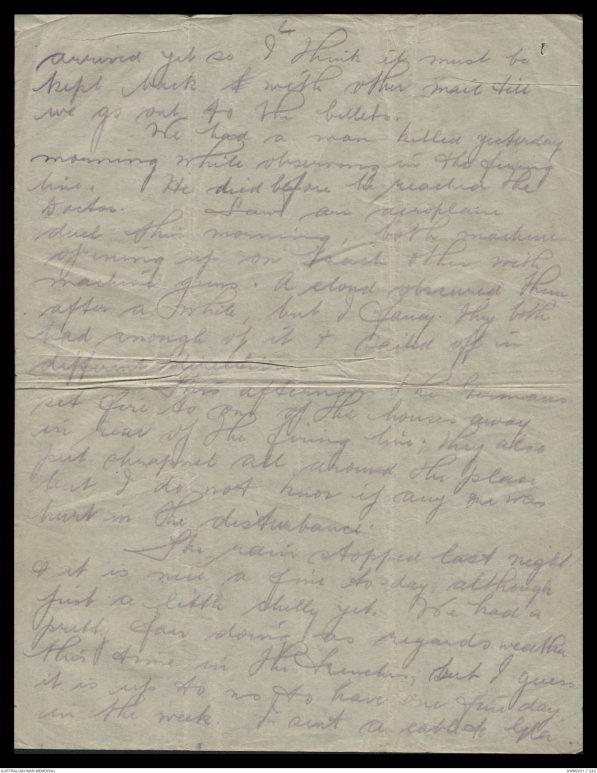 4
arrived yet so I think it must be
kept back & with other mail till
we go out to the billets.
We had a man killed yesterday
morning while observing in the firing
line. He died before he reached the
Doctor. Saw an aeroplane
duel this morning, both machines
opening up on each other with
machine guns. A cloud obscured them
after a while, but I fancy they both
had enough of it & sailed off in
different directions.
This afternoon the Germans
set fire to one of the houses away
in rear of the firing line; they also
put shrapnel all around the place
but I do not know if any one was
hurt in the disturbance.
The rain stopped last night
& it is nice & fine to-day, although
just a little chilly yet. We had a
pretty fair doing as regards weather
this time in the trenches, but I guess
it is up to us to have one fine day
in the week. I sent a cable to
AUSTRALIAN WAR MEMORIAL